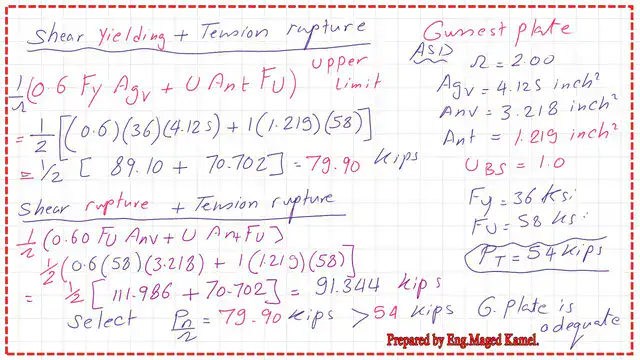 Shear Yielding + Tension rupture
1/Ω (0.6 Fy Agv + U Ant FU) upper limit
= 1/2 [(0.6)(36)(4.125) + 1(1.219)(58)]
= 1/2 [ 89.10 + 70.702] = 79.90 Kips
Shear rupture + Tension rupture
1/2 (0.60 FU Anv + U Ant FU)
1/2 (0.6(58)(3.218) + 1(1.219)(58)]
= 1/2 [111.986 + 70.702] = 91.344 kips
select Pn/Ω = 79.90 Kips > 54 kips G. plate is adequate
Gusset plate
ASD
Ω = 2.00
Agv = 4.125 inch²
Anv = 3.218 inch²
Ant = 1.219 inch²
UBS = 1.0
Fy = 36 Ksi
FU = 58 Ksi
PT = 54 Kips
Prepared by Eng.Maged Kamel.